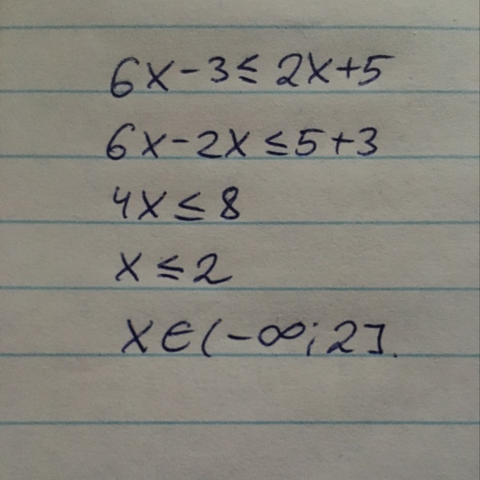 6x-3≤2x+5
6x-2x≤5+3
4x≤8
x≤2
x∈(-∞;2].